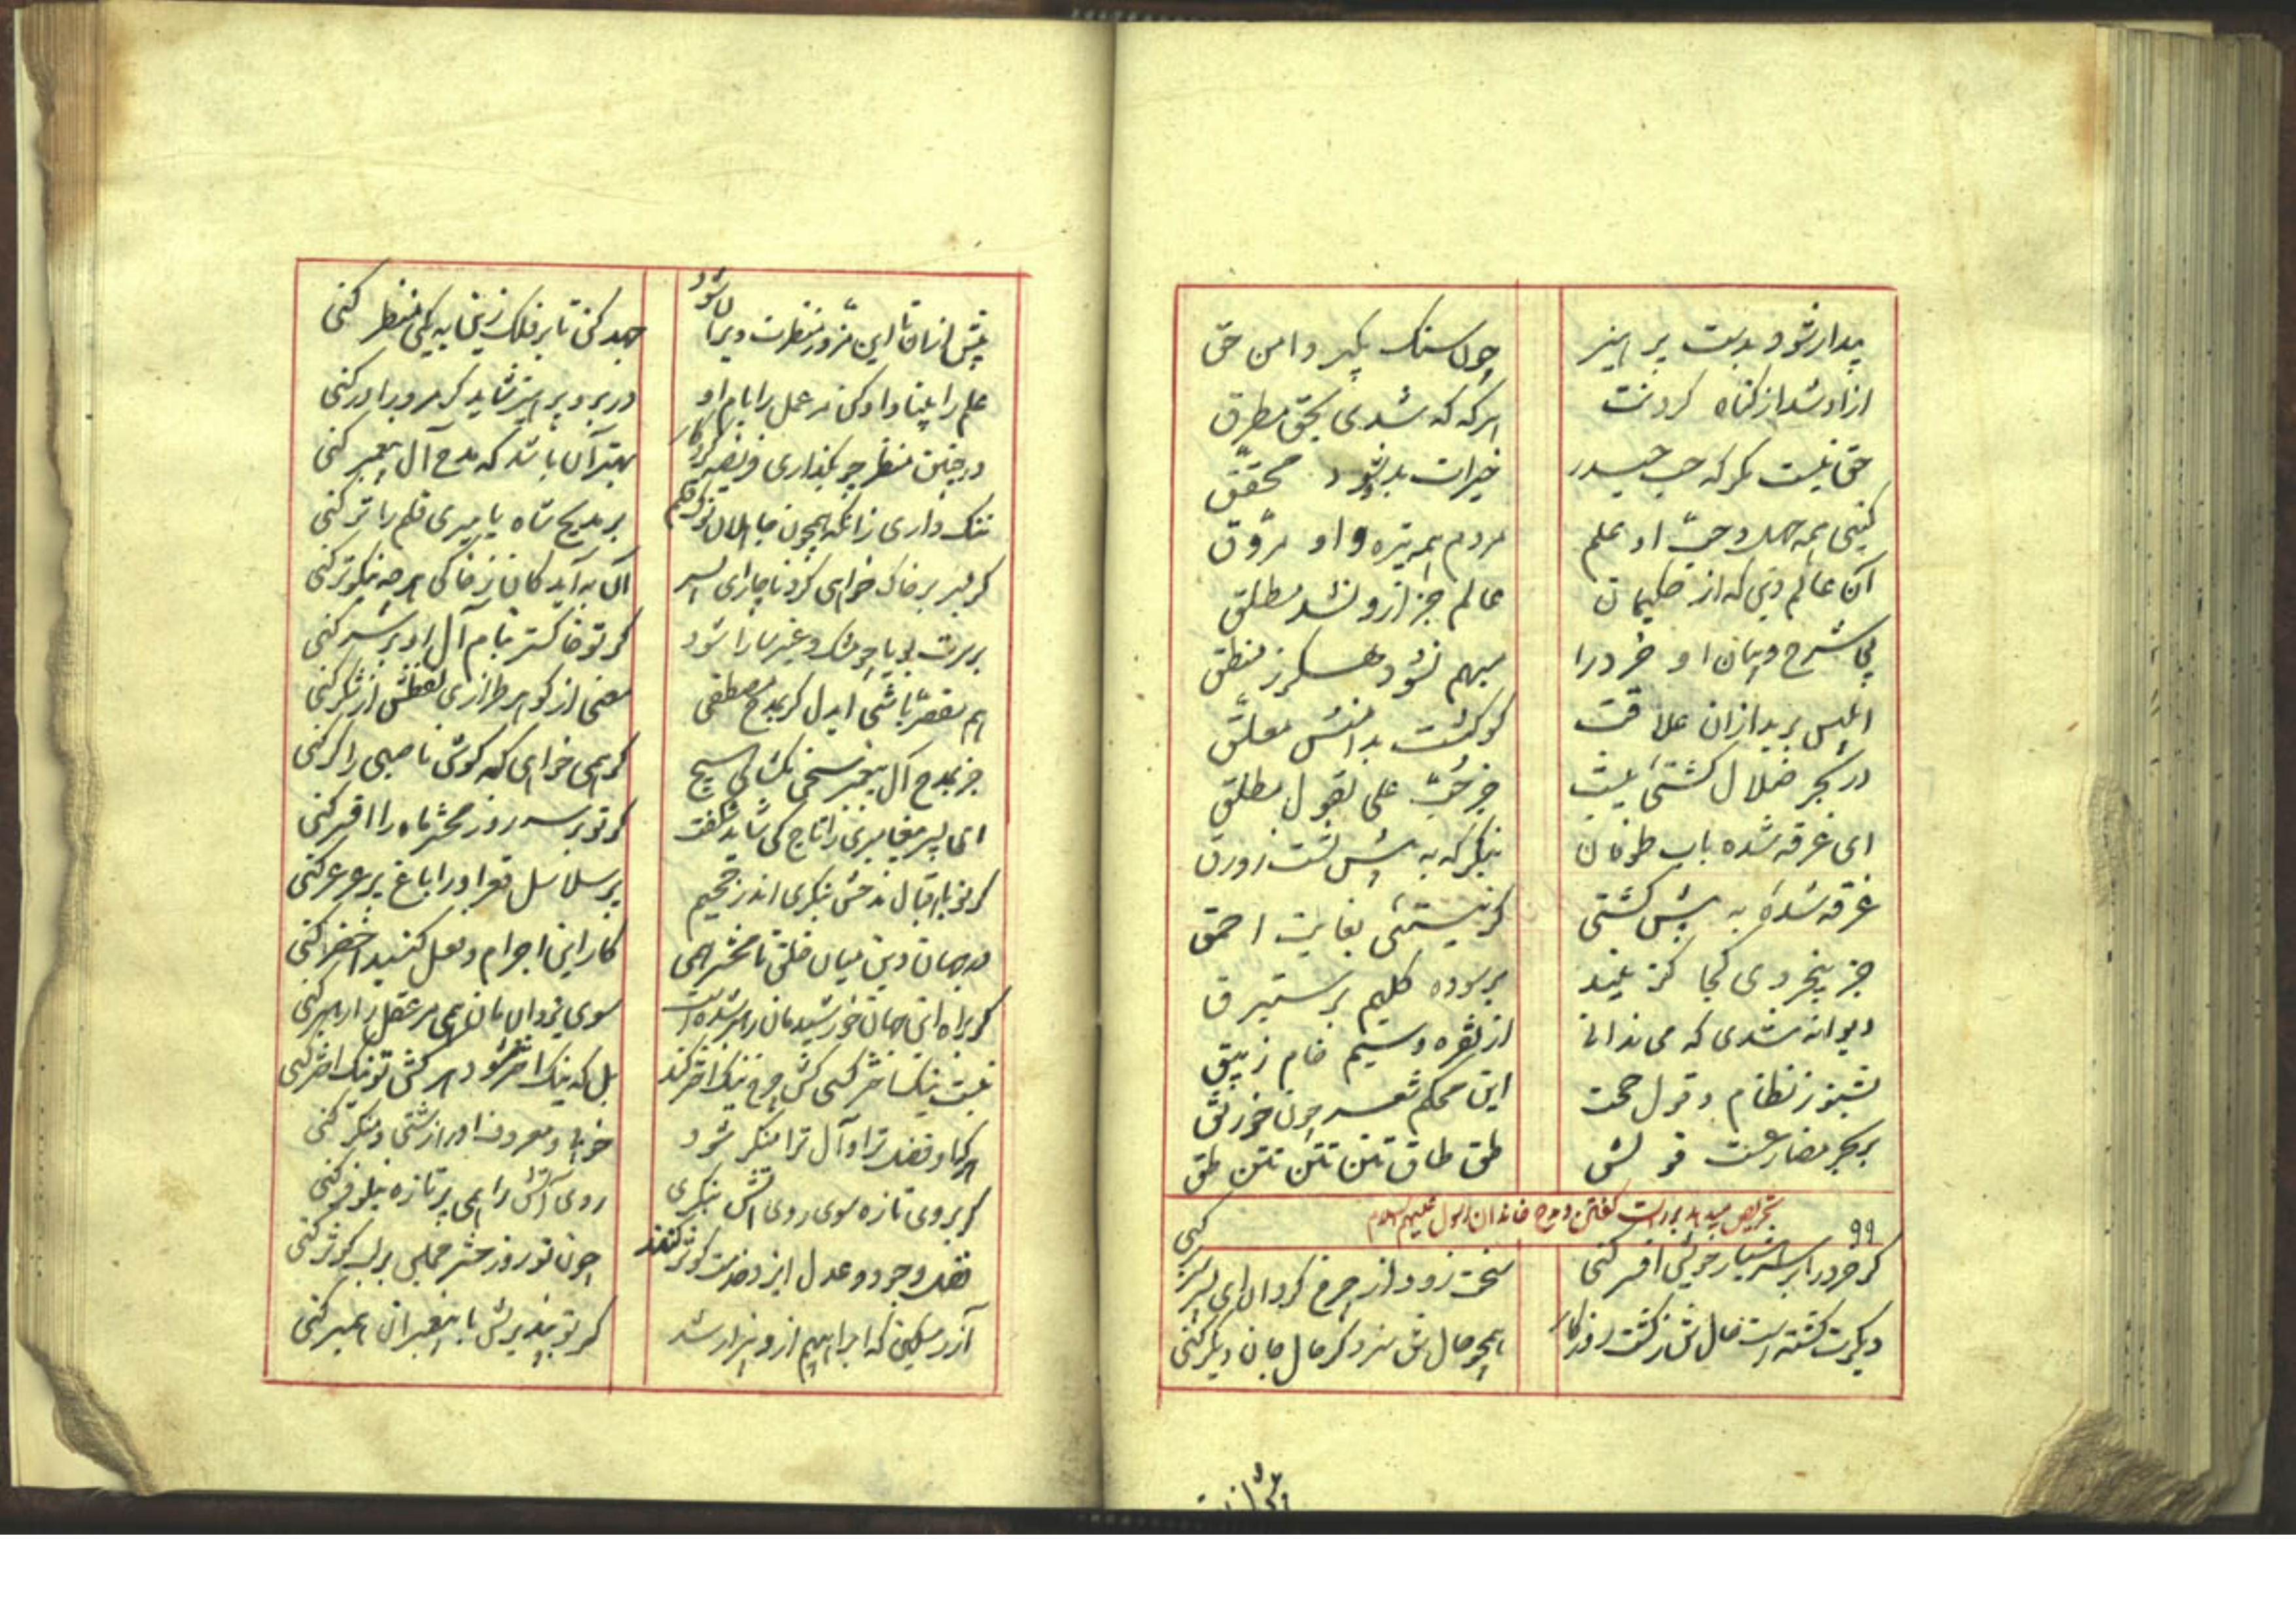 پدار شو و بدست پر هیز چون سنک بکیر دامن حق
ازاد شد از کناه کردنت هر که که شدی بحق مطرق
حق نیست مکر که حب حیدر خیرات بدو شود محقق
کیتی همه جهل و حب او علم مردم همه تیره و او مروق
آن عالم دین که از حکیمان عالم جز ازو نشد مطلق
بی شرح و بیان او خرد را مبهم نشود هکرز منطق
ابلیس برید ازان علاقت کو کشت بدامنش معلق
در بحر ضلال کشتئی نیست جز حب علی بقول مطلق
ای غرقه شده باب طوفان بنکر که به پیش تست زورق
غرقه شدهٔ به پیش کشتی کر نیستئی بغایت احمق
جز بیخردی کجا کزیند بر برده کلیم بر ستبرق
دیوانه شدی که می ندانی از نقره و سیم خام زیبق
بشنو ز نظام و قول حجت این محکم شعر چون خورنق
بر بحر مضارعست قولش طق طاق تنن تنن تنن طق
۹۹ در مدح خاندان رسول علیهم السلام
کر خرد را بر سر هشیار خویش افسر کنی سخت زود از چرخ کردان ای پسر سر بر کنی
دیکرت کشته است حال تن ز کشت روزکار همچو حال تن سزد کر حال جان دیکر کنی
پیش ازان تا این مزور منظرت ویران شود جهد کن تا بر فلک زین به یکی منظر کنی
علم را بنیاد او کن مر عمل را بام او در برو پرهیز شاید کر مر او را در کنی
در چنین منظر چو بکذاری فریضه کردکار بهتر آن باشد که مدح آل پیغمبر کنی
ننک داری زانکه همچون جاهلان نوک قلم بر مدیح شاه یا میری قلم را تر کنی
کر لبر بر خاک خواهی کرد ناچار ای پسر آن به آید کان ز خاکی هر چه نیکوتر کنی
بر سرت بویا چو مشک و عنبر سارا شود کر تو خاکستر بنام آل او بر سر کنی
هم مقصر باشی ایدل کر بمدح مصطفی معنی از کوهر طرازی لفظش از شکر کنی
جز بمدح آل پیغمبر سخن مکشای هیچ کر همی خواهی که کوش ناصبی را کر کنی
ای پسر پیغامبری را تاج کی شاید شکفت کر تو بر سر روز محشر ماه را افسر کنی
کر تو با اقبال مدحش بنکری اندر جحیم پر سلاسل قعر او را باغ پر عرعر کنی
در جهان دین میان خلق تا محشر همی کار این اجرام و فعل کنبد اخضر کنی
کر براه این جهان خورشیدمان رهبر شده است سوی یزدان مان همی مر عقل را رهبر کنی
نیست نیک اختر کسی کش چرخ نیک اختر کند بل که نیک اختر شود هر کش تو نیک اختر کنی
هر که او فضل ترا و آل ترا منکر شود خوب او معروف او را زشتی و منکر کنی
کر بروی تازه سوی روی آتش بنکری روی آتش را همی پر تازه نیلوفر کنی
فضل و جود و عدل ایزد خدمت کوثر کنند چون تو روز حشر مجلس بر لب کوثر کنی
آزر مسکین که ابراهیم ازو بیزار شد کر تو بپذیریش با پیغمبران همبر کنی